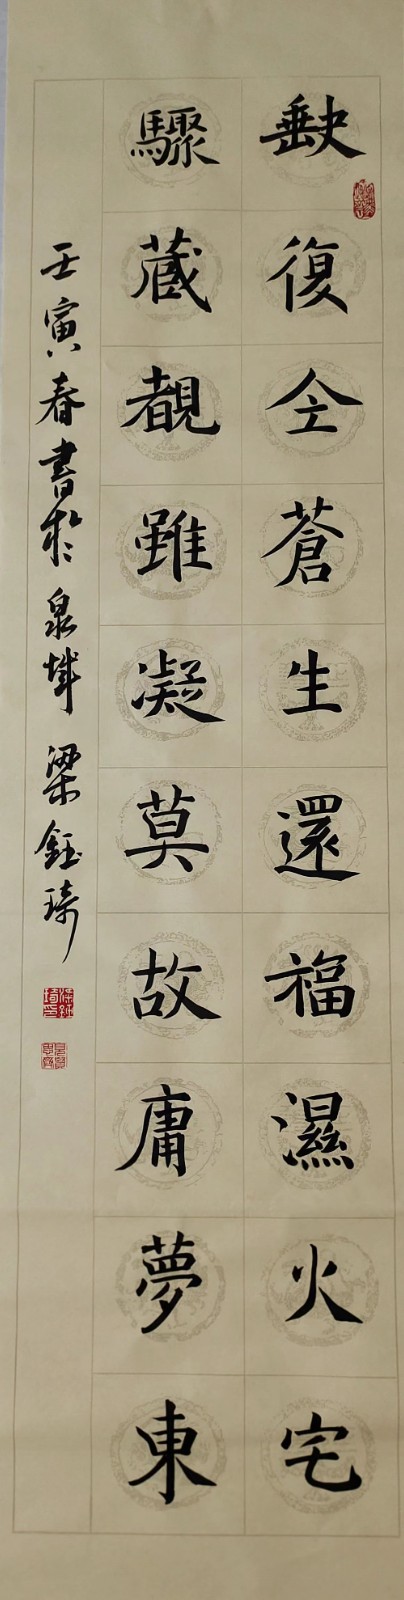 缺復全蒼生還福濕火宅
驟藏覩雖凝莫故庸夢東
壬寅春書於泉城 梁鈺琦